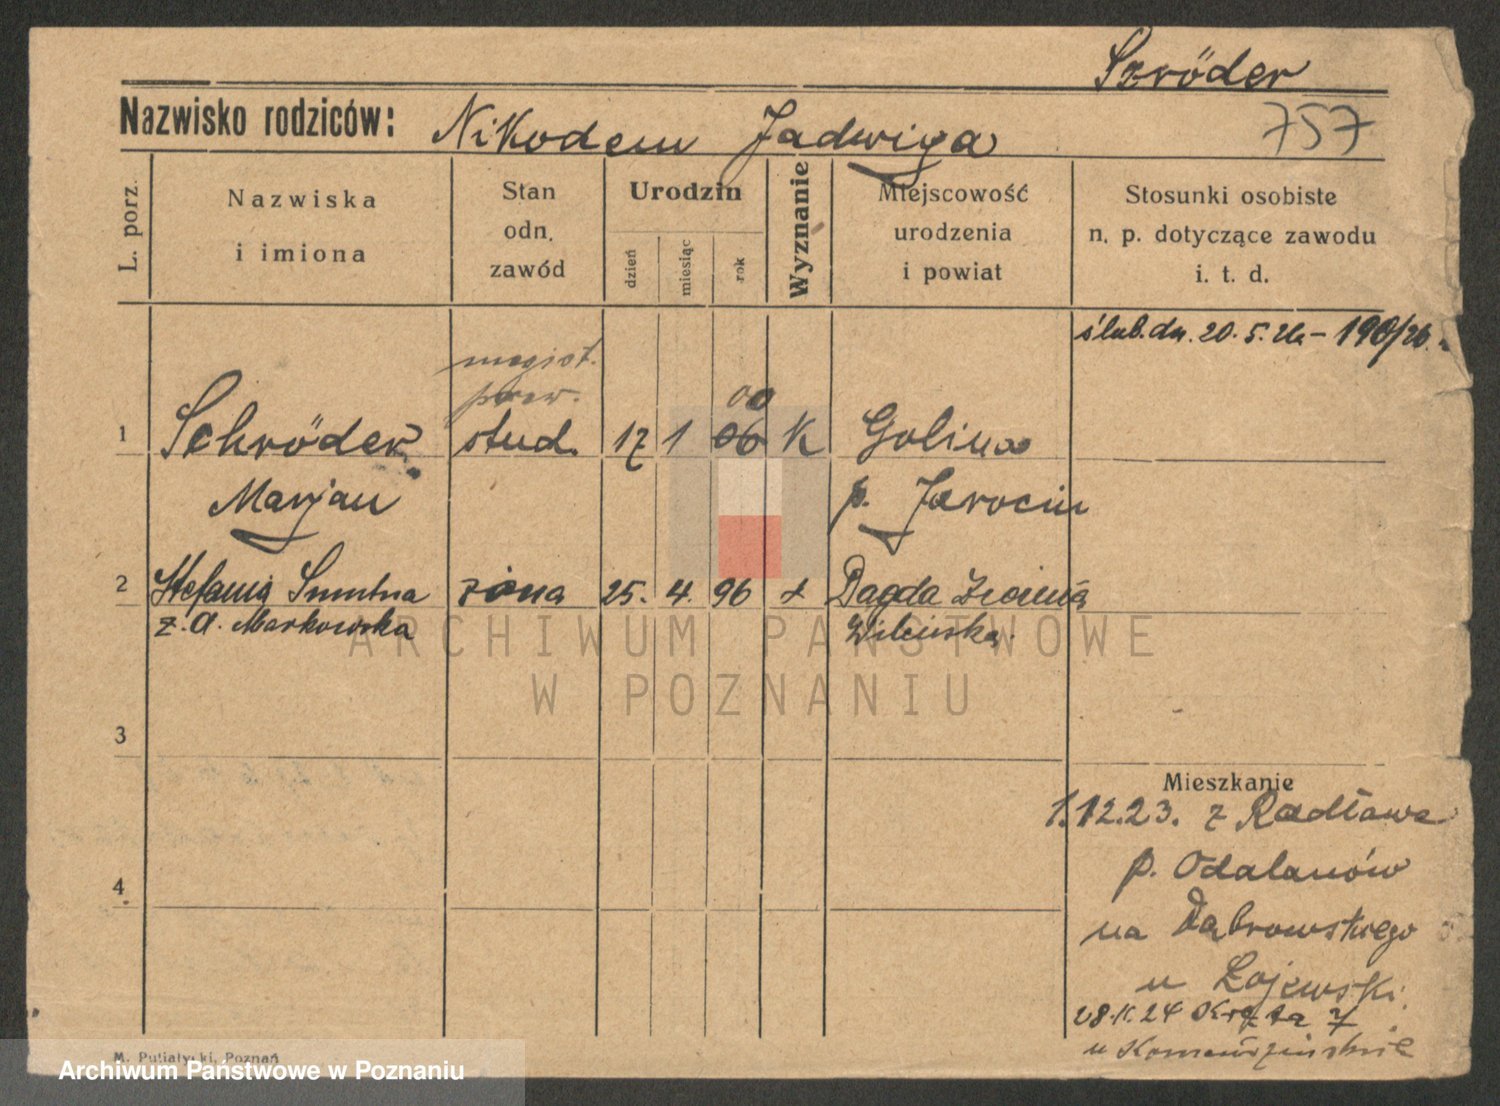 Szröder
Nazwisko rodziców: Nikodem Jadwiga 757
L. porz.
Nazwiska i imiona
Stan odn. zawód
Urodzin
dzień miesiąc rok
Wyznanie
Miejscowość urodzenia i powiat
Stosunki osobiste n. p. dotyczące zawodu i. t. d.
ślub. dn. 20. 5. 26 – 190/26.
magist.
praw. 00
1 Schröder stud. 17 1 06 K Golina
Marjan p. Jarocin
2 Stefania Smutna żona 25. 4. 96 Dagda
z. d. Markowska Wileńska
ARCHIWUM PAŃSTWOWE
W POZNANIU
3
Mieszkanie
1.12.23. z Radława
p. Odalanów
4
na Dąbrowskiego
u Łojewski
28. 24 Kręta 7
u
M. Putiatycki, Poznań
Archiwum Państwowe w Poznaniu